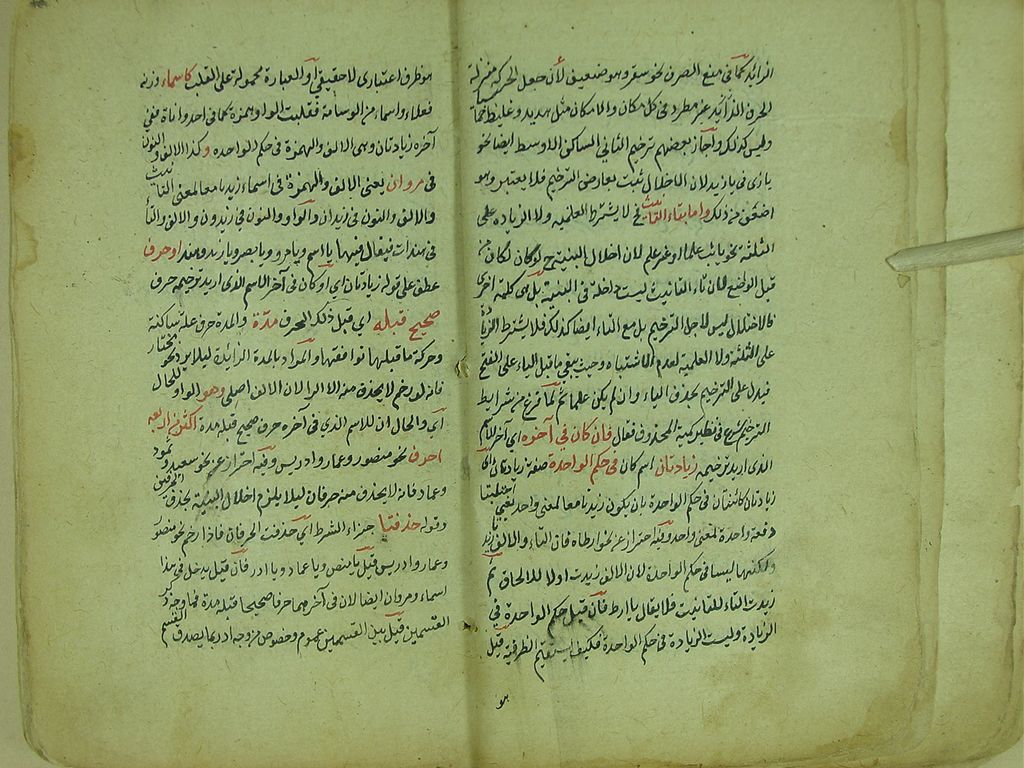 الزائد كما في منع الصرف نحو سقر وهو ضعيف لأن جعل الحركة بمنزلة
الحرف الزائد غير مطرد في كل مكان والا مكان مثل هديد وغليط
وليس كذلك وأجاز بعضهم ترخيم الثاني الساكن الاوسط ايضا نحو
يا زى في يا زيد لان الاخلال ثبت بعارض الترخيم فلا يعتبر وهو
اضعف من ذلك واما بقاء التأنيث فح لا يشترط العلمية ولا الزيادة على
الثلثة نحو يا ثب علما او غير علم لان اخلال البنية ح لو كان لكان من
قبل الواضع لان تاء التأنيث ليست داخلة في البنية بل هي كلمة اخرى
فالاختلال ليس لاجل الترخيم بل مع التاء ايضا كذلك فلا يشترط الزيادة
على الثلثة ولا العلمية لعدم الاشتباه وحيث يبقى ما قبل الياء على الفتح
فيدل على الترخيم بحذف الياء وان لم يكن علما ثم لما فرغ من شرايط
الترخيم شرع في نظير كمية المحذوف فقال فان كان في آخره اي آخر الاسم
الذى اريد ترخيمه زيادتان اسم كان في حكم الواحدة صفة زيادتان اى
زيادتان كائنتان في حكم الواحدة بان يكون زيدتا معا لمعنى واحد
دفعة واحدة لمعنى واحد وفيه احتراز عن نحو ارطاة فان التاء والالف زيد
ولكنهما ليسا في حكم الواحدة لان الالف زيدت اولا للالحاق ثم
زيدت التاء للتأنيث فلا يقال يا ارط فان قيل حكم الواحدة في
الزيادة وليست الزيادة في حكم الواحدة فكيف يستقيم الظرفية قيل
هو
هو ظرف اعتبارى لا حقيقى او العبارة محمولة على القلب كاسماء وزنه
فعلاء واسماء من الوسامة فقلبت الواو همزة كما في احد واناة ففي
آخره زيادتان وهي الالف والهمزة في حكم الواحده وكذا الالف والنون
في مروان يعنى الالف والهمزة في اسماء زيدتا معا لمعنى التأنيث
والالف والنون في زيدان والواو والنون في زيدون والالف والتاء
في هندات فيقال فيها يا اسم ويا مرو ويا بصر ويا زيد وهند او حرف
عطف على قوله زيادتان اى او كان في آخر الاسم الذى اريد ترخيمه حرف
صحيح قبله اي قبل ذلك الحرف مدة والمدة حرف علة ساكنة
وحركة ما قبلها توافقها والمراد بالمدة الزائدة ليلا يرد نحو مختار
فانه لو رخم لا يحذف منه الا الرا لان الالف اصلى وهو الواو للحال
اى والحال ان للاسم الذي في آخره حرف صحيح قبله مدة اكثر من اربعة
احرف نحو منصور وعمار وادريس وفيه احتراز عن نحو سعيد وثمود
وعماد فانه لا يحذف منه حرفان ليلا يلزم اخلال البنية بحذف الحرفين
وقوله حذفتا جزاء الشرط اى حذفت الحرفان فاذا رخم نحو منصور
وعمار وادريس قيل يا منص ويا عم ويا ادر فان قيل يدخل في هذا
اسماء ومروان ايضا لان في آخرهما حرفا صحيحا قبله مدة فما وجه ذكر
القسمين قيل بين القسمين عموم وخصوص من وجه اذ ربما يصدق القسم